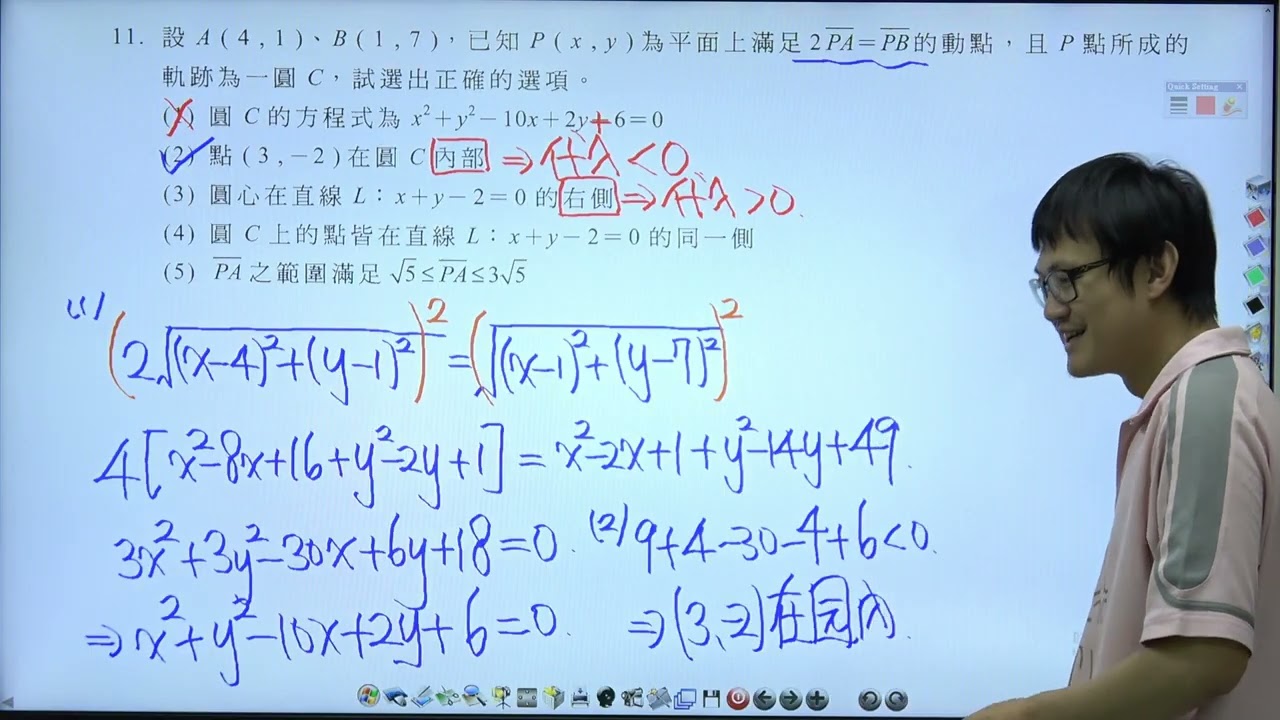 11. 設 A ( 4 , 1 )、B ( 1 , 7 )，已知 P ( x , y ) 為平面上滿足 2PA=PB 的動點，且 P 點所成的
軌跡為一圓 C，試選出正確的選項。
(1) 圓 C 的方程式為 x²+y²−10x+2y+6=0
(2) 點 ( 3 , −2 ) 在圓 C 內部 ⇒ 代入 < 0
(3) 圓心在直線 L：x+y−2=0 的右側 ⇒ 代入 > 0.
(4) 圓 C 上的點皆在直線 L：x+y−2=0 的同一側
(5) PA 之範圍滿足 √5≤PA≤3√5
Quick Setting
(1) (2√((x-4)²+(y-1)²))² = (√((x-1)²+(y-7)²))²
4[x²-8x+16+y²-2y+1] = x²-2x+1+y²-14y+49.
3x²+3y²-30x+6y+18=0. (2) 9+4-30-4+6<0.
⇒ x²+y²-10x+2y+6=0. ⇒ (3,-2)在园內.